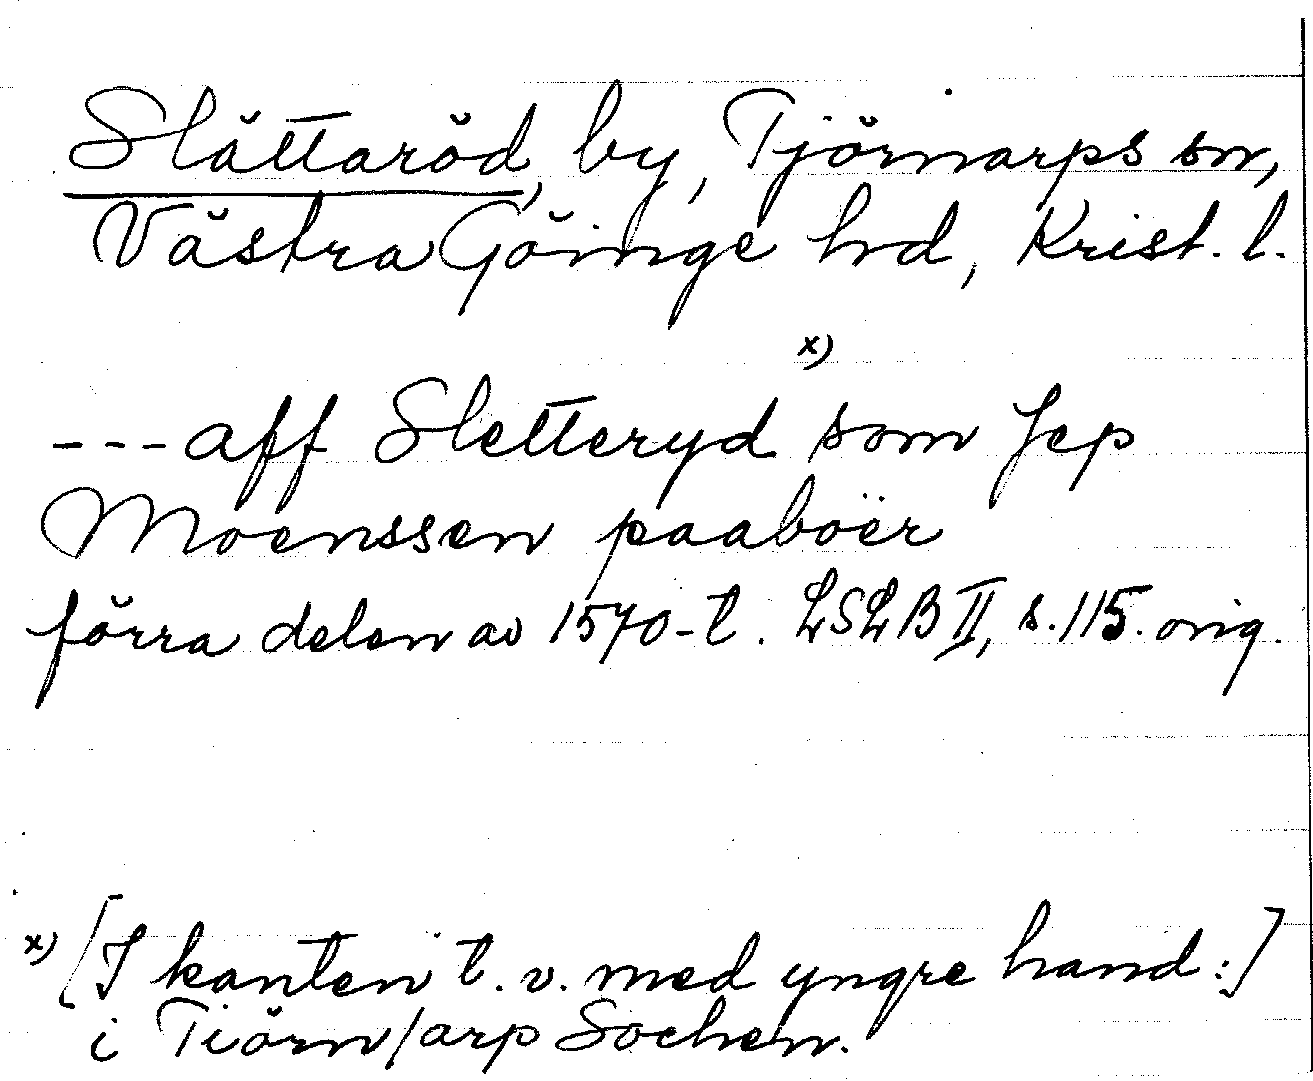 Slättaröd, by, Tjörnarps sn,
Västra Göinge hd, Krist. l.
x)
---aff Sletteryd som Jep
Moenssen paaboër
förra delen av 1570-t. LSLB II, s. 115. orig.
x) [I kanten t. v. med yngre hand:]
i Tiörn/arp Sochen.